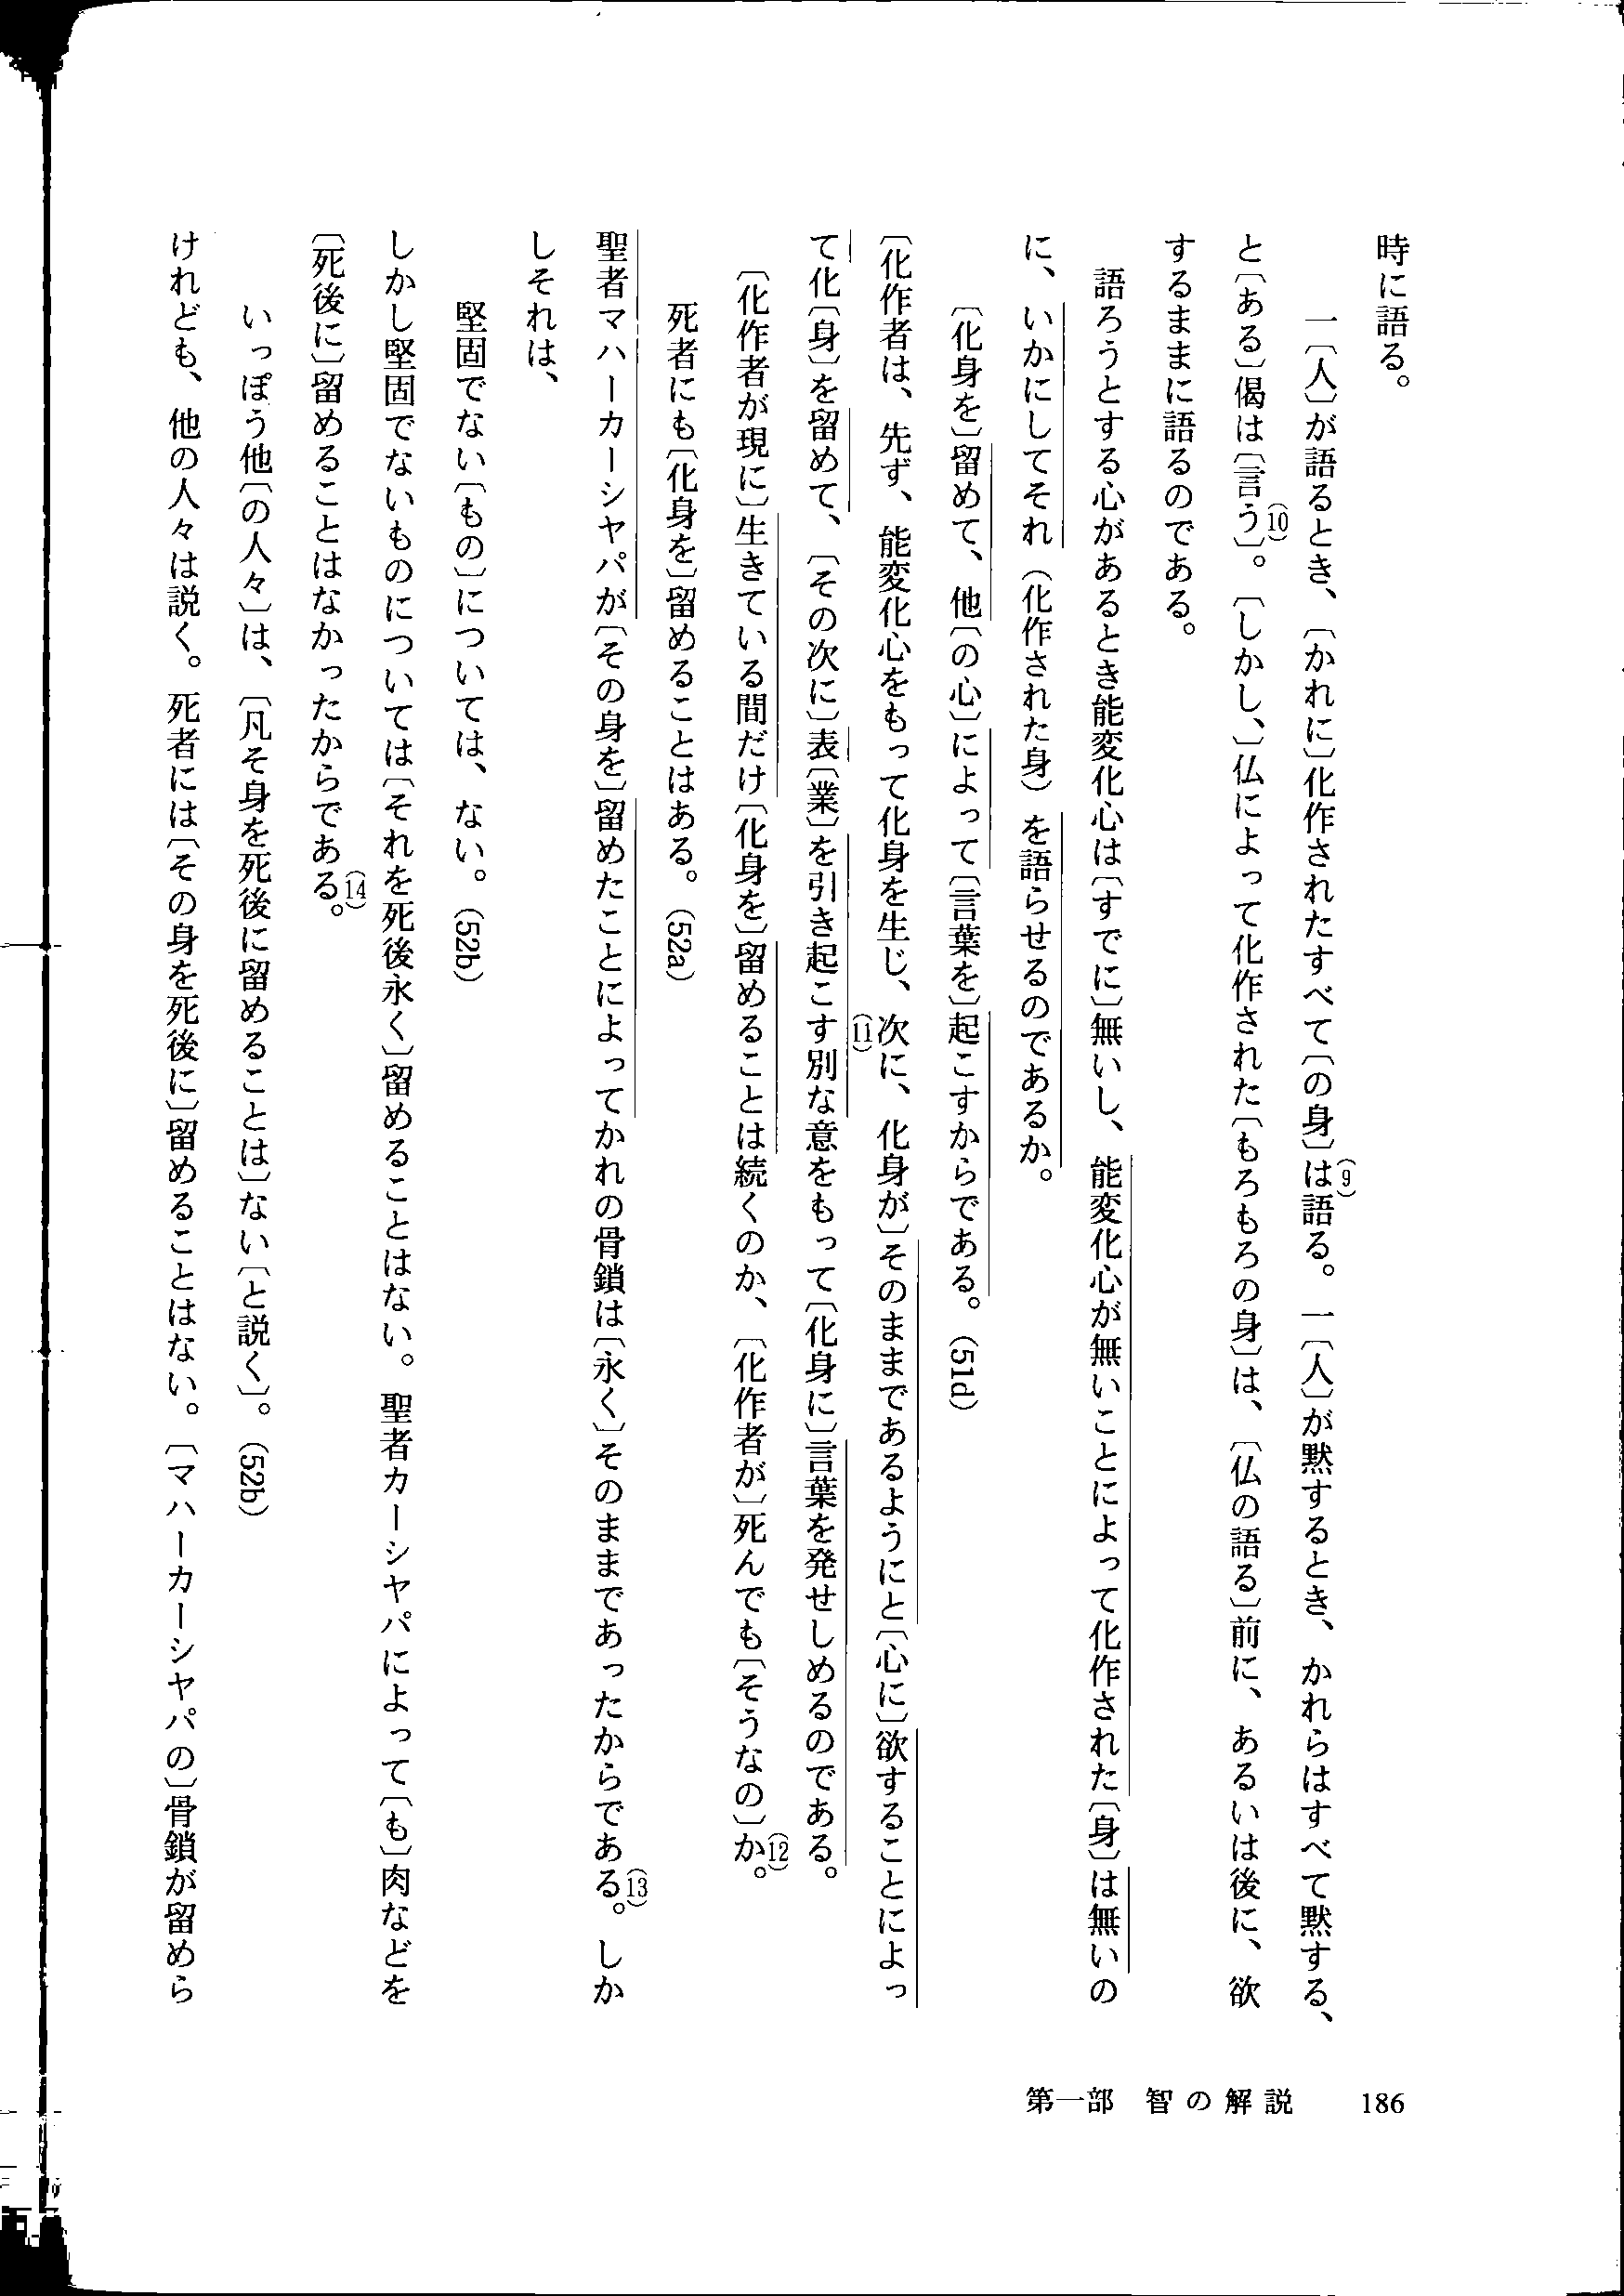 時に語る。
一〔人〕が語るとき、〔かれに〕化作されたすべて〔の身〕は語る。(9)一〔人〕が黙するとき、かれらはすべて黙する、
と〔ある〕偈は〔言う〕。(10)〔しかし、〕仏によって化作された〔もろもろの身〕は、〔仏の語る〕前に、あるいは後に、欲
するままに語るのである。
語ろうとする心があるとき能変化心は〔すでに〕無いし、能変化心が無いことによって化作された〔身〕は無いの
に、いかにしてそれ（化作された身）を語らせるのであるか。
〔化身を〕留めて、他〔の心〕によって〔言葉を〕起こすからである。（51d）
〔化作者は、先ず、能変化心をもって化身を生じ、次に、化身が〕そのままであるようにと〔心に〕欲することによっ
て化〔身〕を留めて、〔その次に〕表〔業〕を引き起こす別な(11)意をもって〔化身に〕言葉を発せしめるのである。
〔化作者が現に〕生きている間だけ〔化身を〕留めることは続くのか、〔化作者が〕死んでも〔そうなの〕か。(12)
死者にも〔化身を〕留めることはある。（52a）
聖者マハーカーシヤパが〔その身を〕留めたことによってかれの骨鎖は〔永く〕そのままであったからである。(13)しか
しそれは、
堅固でない〔もの〕については、ない。（52b）
しかし堅固でないものについては〔それを死後永く〕留めることはない。聖者カーシヤパによって〔も〕肉などを
〔死後に〕留めることはなかったからである。(14)
いっぽう他〔の人々〕は、〔凡そ身を死後に留めることは〕ない〔と説く〕。（52b）
けれども、他の人々は説く。死者には〔その身を死後に〕留めることはない。〔マハーカーシヤパの〕骨鎖が留めら
第一部　智の解説　186